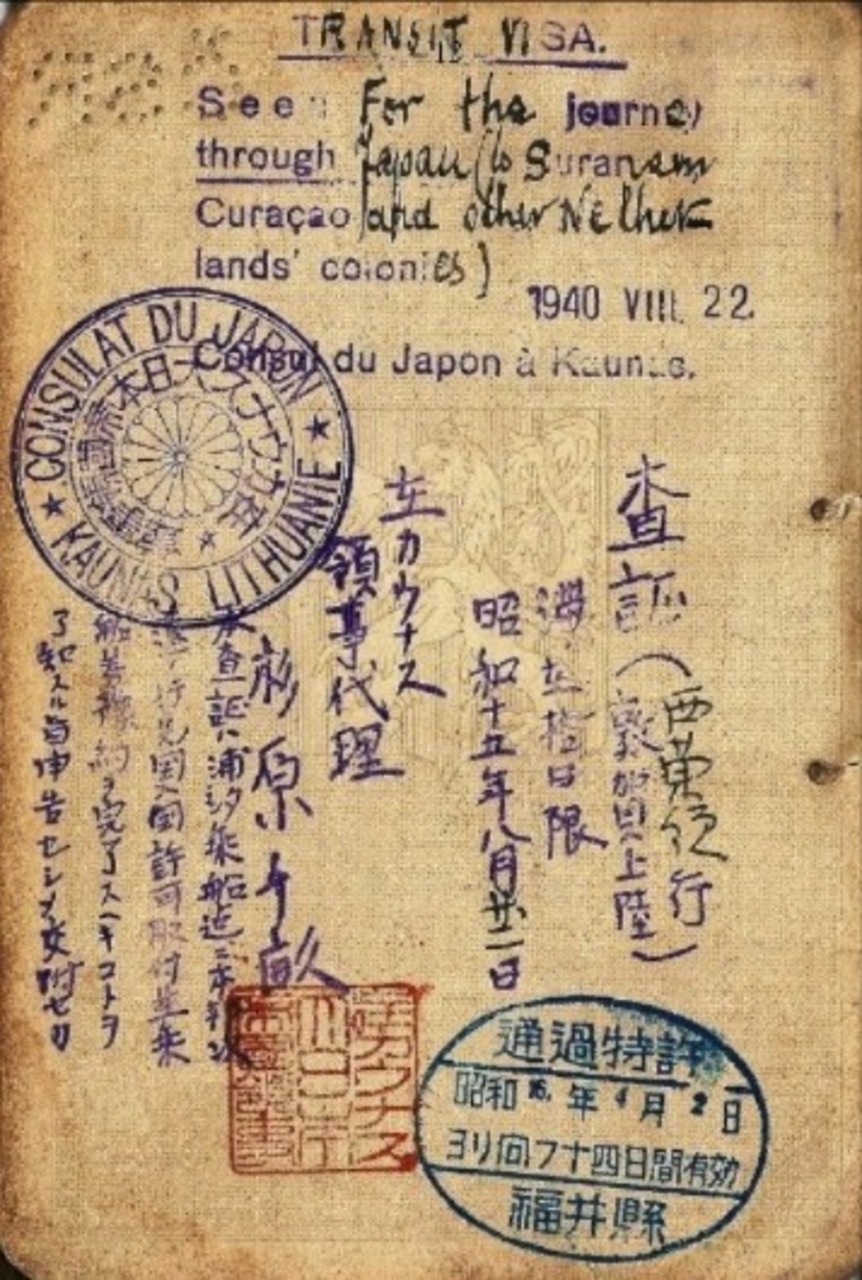 TRANSIT VISA.
Seen For the journey
through Japan (to Suranam
Curaçao and other Nether
lands' colonies)
1940 VIII 22.
Consul du Japon à Kaunas.
CONSULAT DU JAPON
KAUNAS LITHUANIE
在カウナス大日本帝國領事館
査証
西蘭領行
(敦賀上陸)
滞在拾日限
昭和十五年八月廿二日
在カウナス
領事代理
杉原千畝
本査証ハ浦汐乗船迄ニ本邦以
遠ノ行先国入国許可取付並乗
船券予約ヲ完了スヘキコトヲ
了知スル旨申告セシメ交附セリ
在カウナス
通過特許
昭和16年4月2日
ヨリ向フ十四日間有効
福井縣